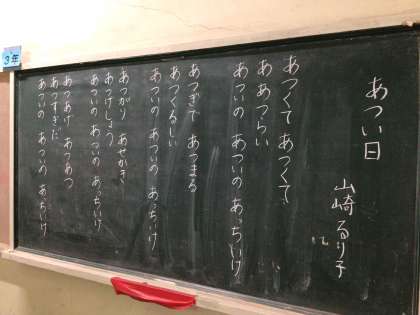 3年
あつい日
山崎 るり子
あつくて あつくて
ああつらい
あついの あついの あっちいけ
あつぎで あつまる
あつくるしい
あついの あついの あっちいけ
あつがり あせかき
あつげしょう
あついの あついの あっちいけ
あつあげ あつあつ
あつすぎだ
あついの あついの あちいけ